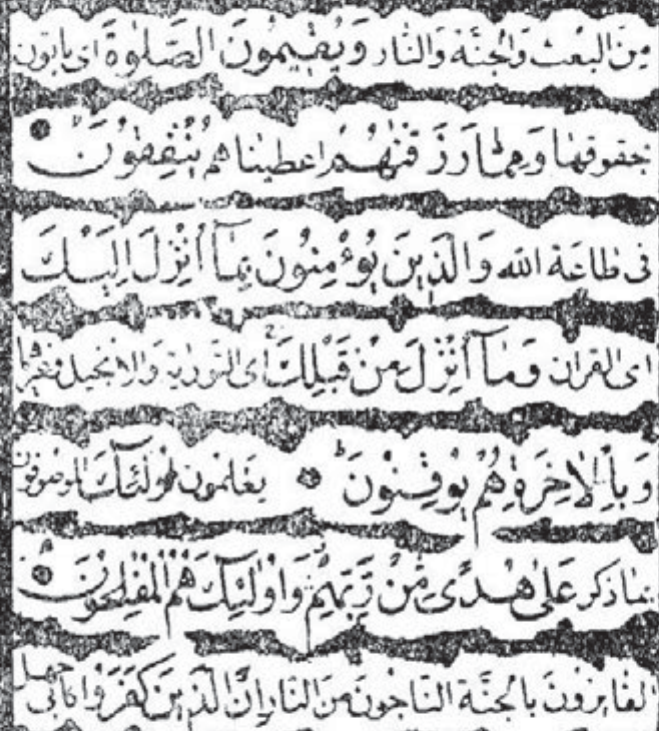 مِنَ البَعْثِ وَالْجَنَّةِ وَالنَّارِ وَيُقِيمُونَ الصَّلٰوةَ اى يأتون
بحقوقها وَمِمَّا رَزَقْنٰهُمْ اعطيناهم يُنْفِقُوْنَ
فى طاعة الله وَالَّذِينَ يُؤْمِنُونَ بِمَآ اُنْزِلَ اِلَيْكَ
اى القران وَمَآ اُنْزِلَ مِنْ قَبْلِكَ اى التورية والانجيل وغيرهما
وَبِالْاٰخِرَةِ هُمْ يُوْقِنُوْنَ يعلمون اُولٰٓئِكَ الموصوفون
بما ذكر عَلٰى هُدًى مِّنْ رَّبِّهِمْ وَاُولٰٓئِكَ هُمُ الْمُفْلِحُوْنَ
الفايزون بالجنة الناجون من النار اِنَّ الَّذِينَ كَفَرُوْا كابى جهل